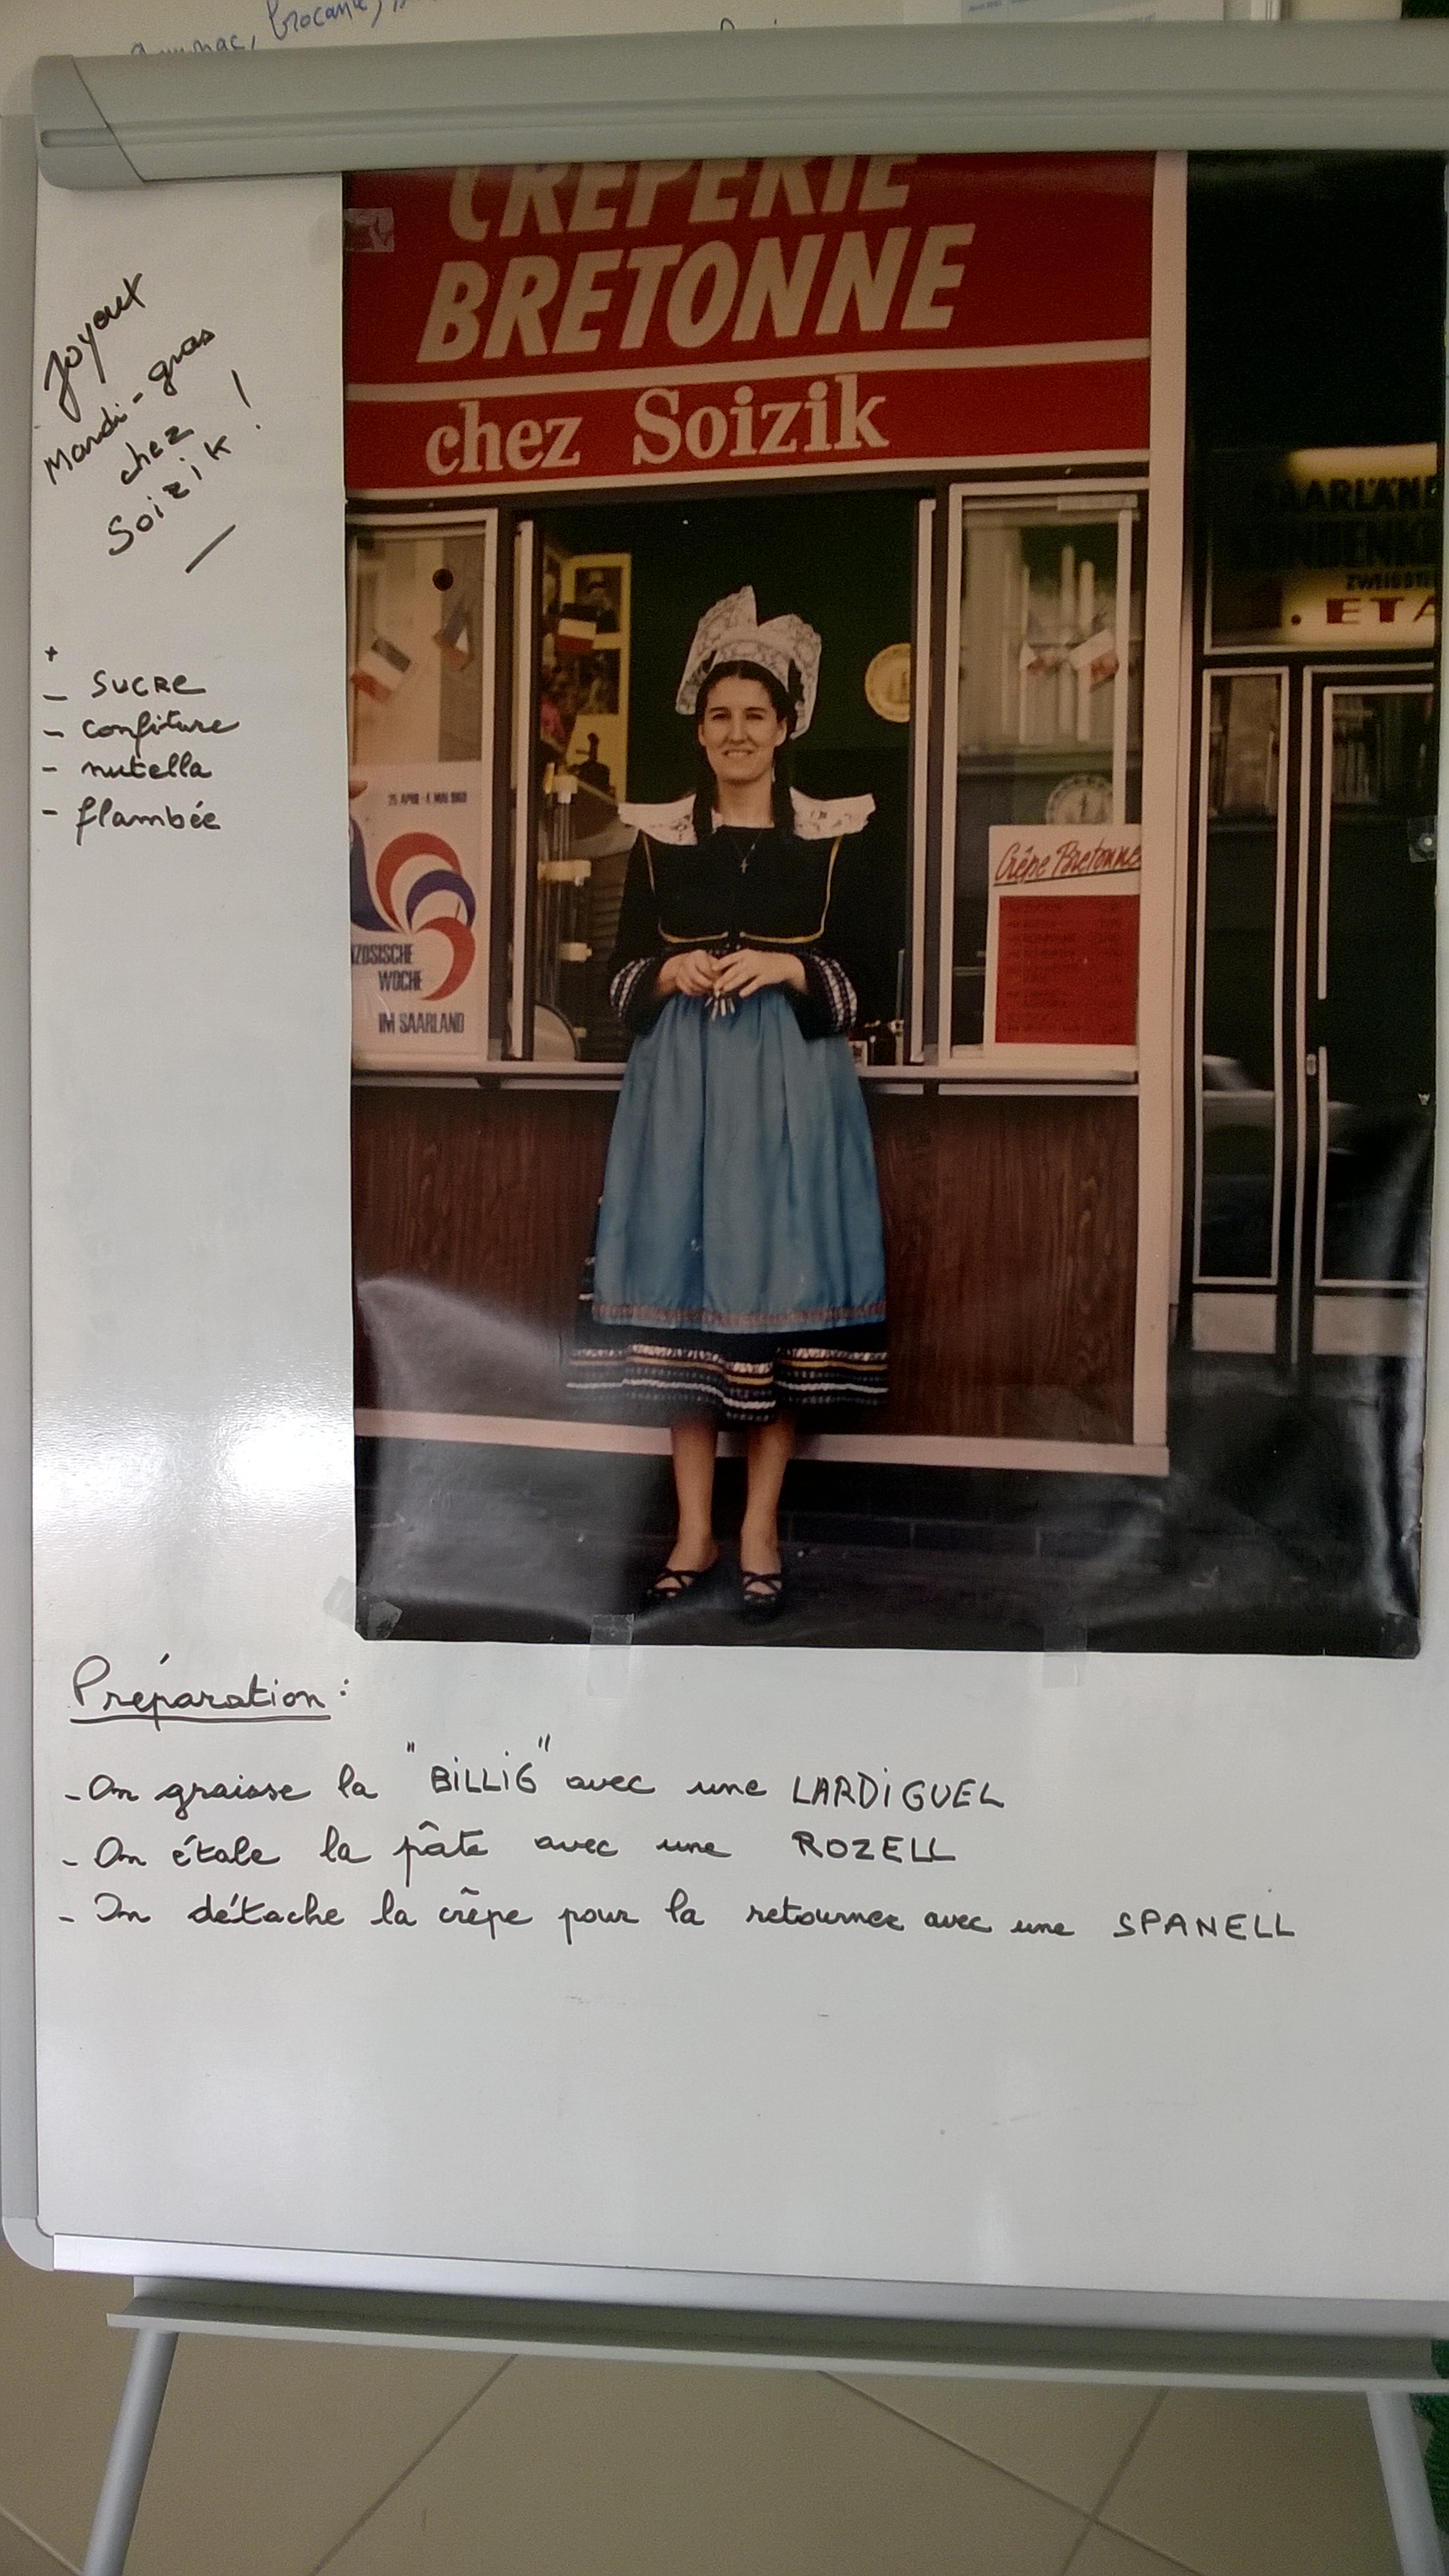 Brocante,
CRÊPERIE
BRETONNE
chez Soizik
Joyeux
Mardi-gras
chez
Soizik !
+
- SUCRE
- confiture
- nutella
- flambée
SAARLÄN
ZWEIGST
. ETA
25 APRIL - 4. MAI
ZÖSISCHE
WOCHE
IM SAARLAND
Crêpe Bretonne
Préparation :
- On graisse la "BILLIG" avec une LARDIGUEL
- On étale la pâte avec une ROZELL
- On détache la crêpe pour la retourner avec une SPANELL